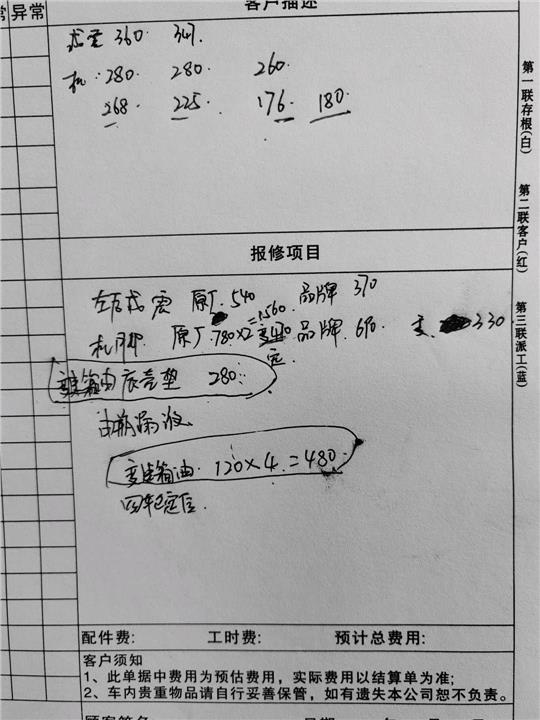 常 异常 客户描述
减震 360 347.
机: 280. 280. 260.
268. 225. 176. 180.
第一联存根(白) 第二联客户(红) 第三联派工(蓝)
报修项目
左后减震 原厂.540 品牌 370
机脚 原厂.780×2=1560. 品牌.690 330
变速箱油底壳垫 280.
变速箱油. 120×4.=480.
四轮定位.
配件费: 工时费: 预计总费用:
客户须知
1、此单据中费用为预估费用，实际费用以结算单为准;
2、车内贵重物品请自行妥善保管，如有遗失本公司恕不负责。